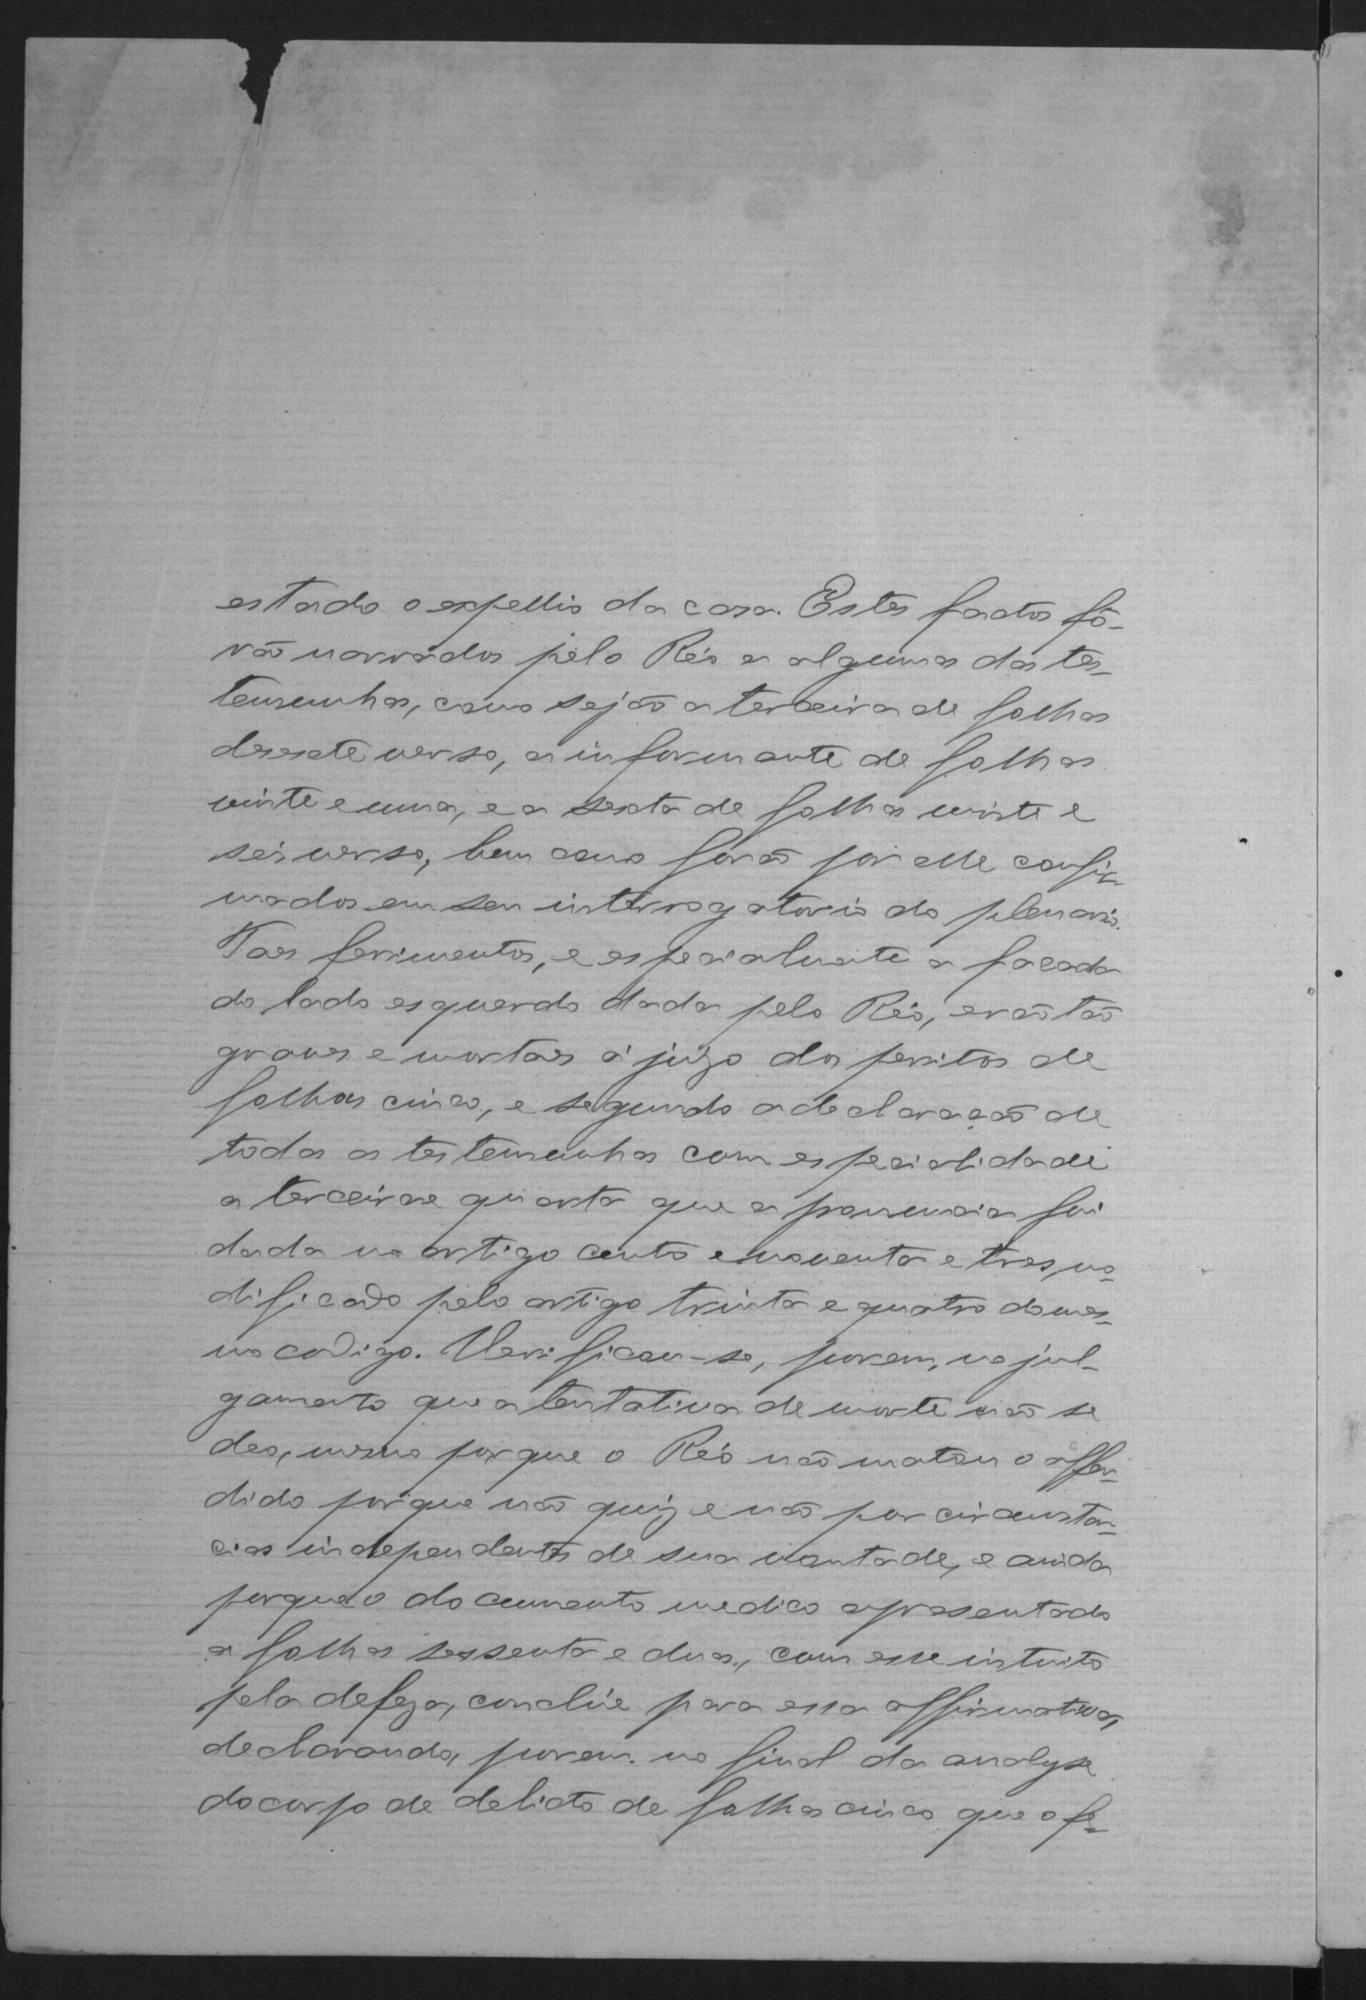 estado o expellio da casa. Estes factos fô-
rão narrados pelo Réo a algumas das tes-
temunhas, como sejão a terceira de folhas
deseste verso, a informante de folhas
vinte e uma, e a sexta de folhas vinte e
seis verso, bem como forão por elle confir-
mados em seu interrogatorio do plenario.
Taes ferimentos, e especialmente a facada
do lado esquerdo dada pelo Réo, erão tão
graves e mortaes a juizo dos peritos de
folhas cinco, e segundo a declaração de
todas as testemunhas com especialidade
a terceira e quarta que a pronuncia foi
dada no artigo cento e noventa e tres, mo-
dificado pelo artigo trinta e quatro do mes-
mo codigo. Verificou-se, porem, no jul-
gamento que a tentativa de morte não se
deo, mesmo porque o Réo não matou o offen-
dido porque não quiz e não por circunstan-
cias independentes de sua vontade, e ainda
porque o documento medico apresentado
a folhas sessenta e duas, com esse intuito
pela defeza, conclúe para essa affirmativa,
declarando, porem no final da analyse
do corpo de delicto de folhas cinco que o fe-